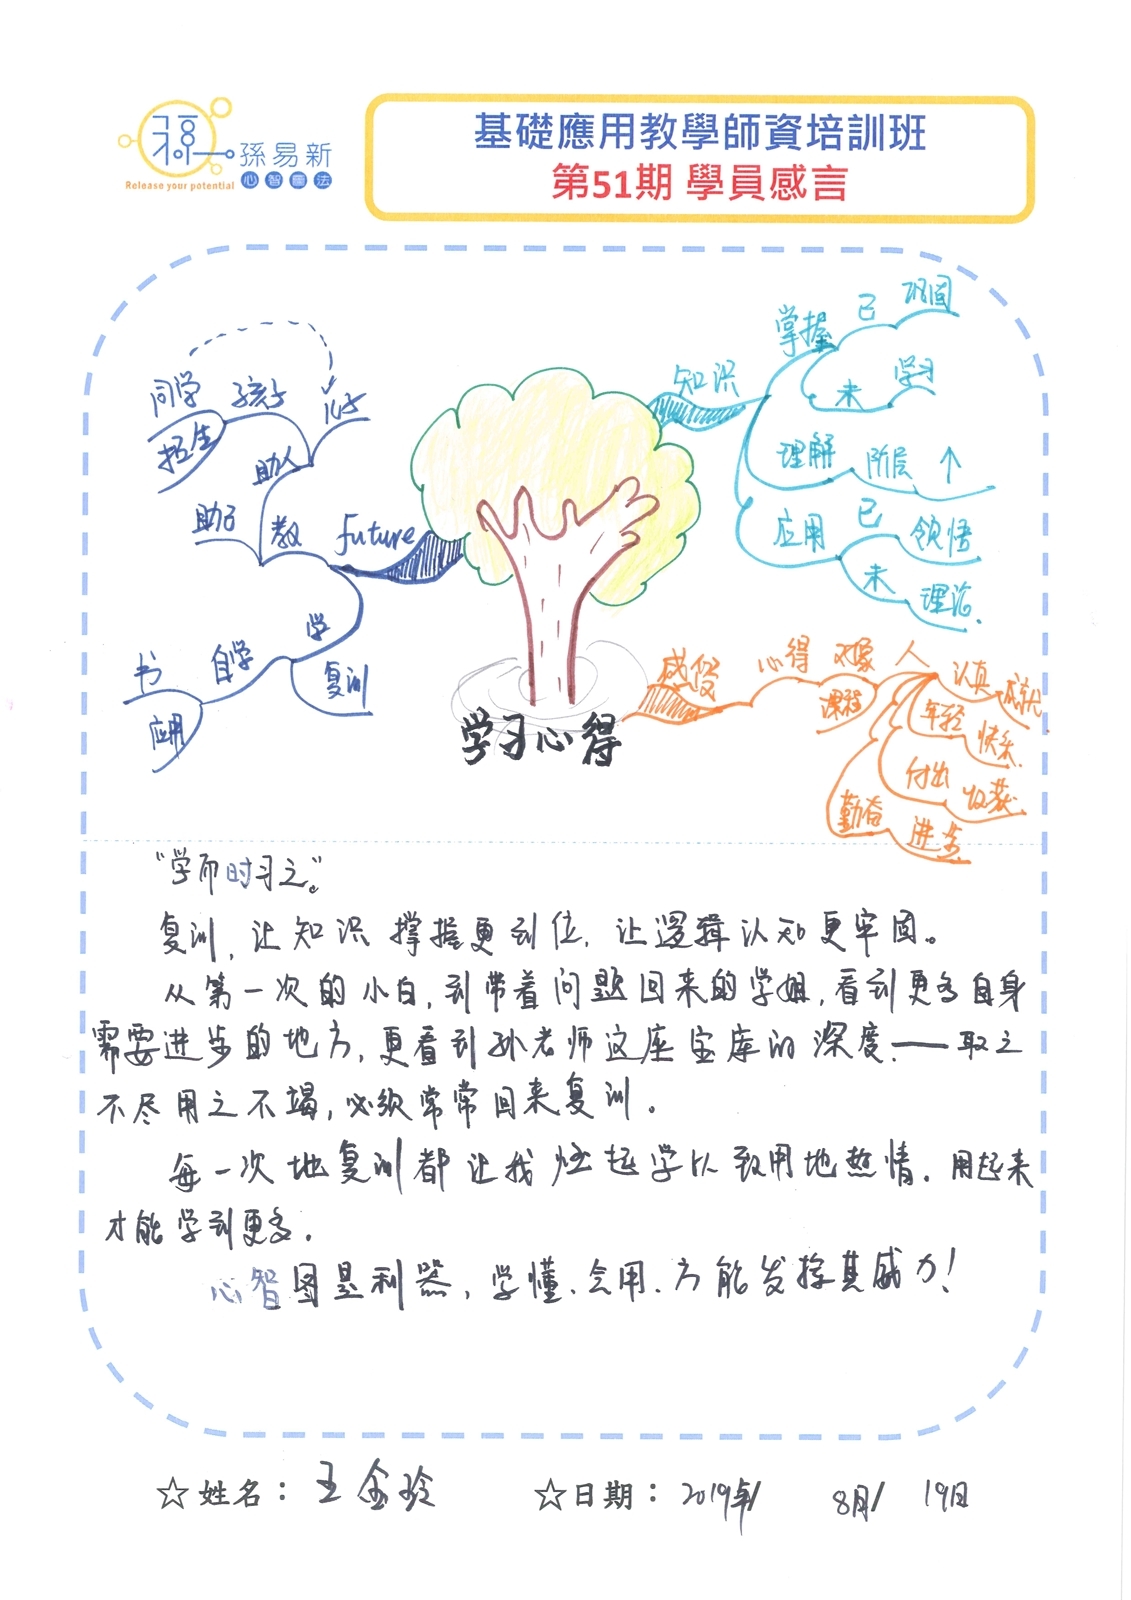 孫易新
心智圖法
Release your potential
基礎應用教學師資培訓班
第51期 學員感言
知识
掌握
已
巩固
未
学习
理解
阶层 ↑
应用
已
领悟
未
理论
感受
心得
对象
课程
人
认真
成就
年轻
快乐
付出
收获
勤奋
进步
future
教
助人
孩子
同学
招生
儿子
助己
学
自学
书
应用
复训
学习心得
“学而时习之”。
复训,让知识撑握更到位,让逻辑认知更牢固。
从第一次的小白,到带着问题回来的学姐,看到更多自身
需要进步的地方,更看到孙老师这座宝库的深度.——取之
不尽用之不竭,必须常常回来复训。
每一次地复训都让我燃起学以致用地热情.用起来
才能学到更多.
心智图是利器,学懂、会用、方能发挥其威力!
☆姓名:王金玲
☆日期:2019年/ 8月/ 19日